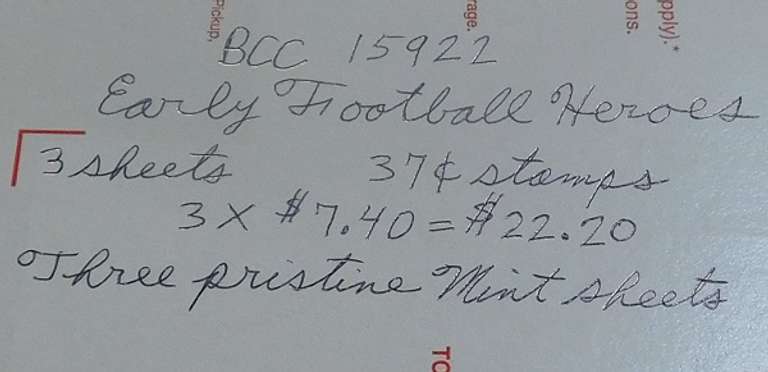 pply).*
ons.
rage.
Pickup,
BCC 15922
Early Football Heroes
3 sheets 37¢ stamps
3 X $7.40 = $22.20
Three pristine Mint sheets
TO